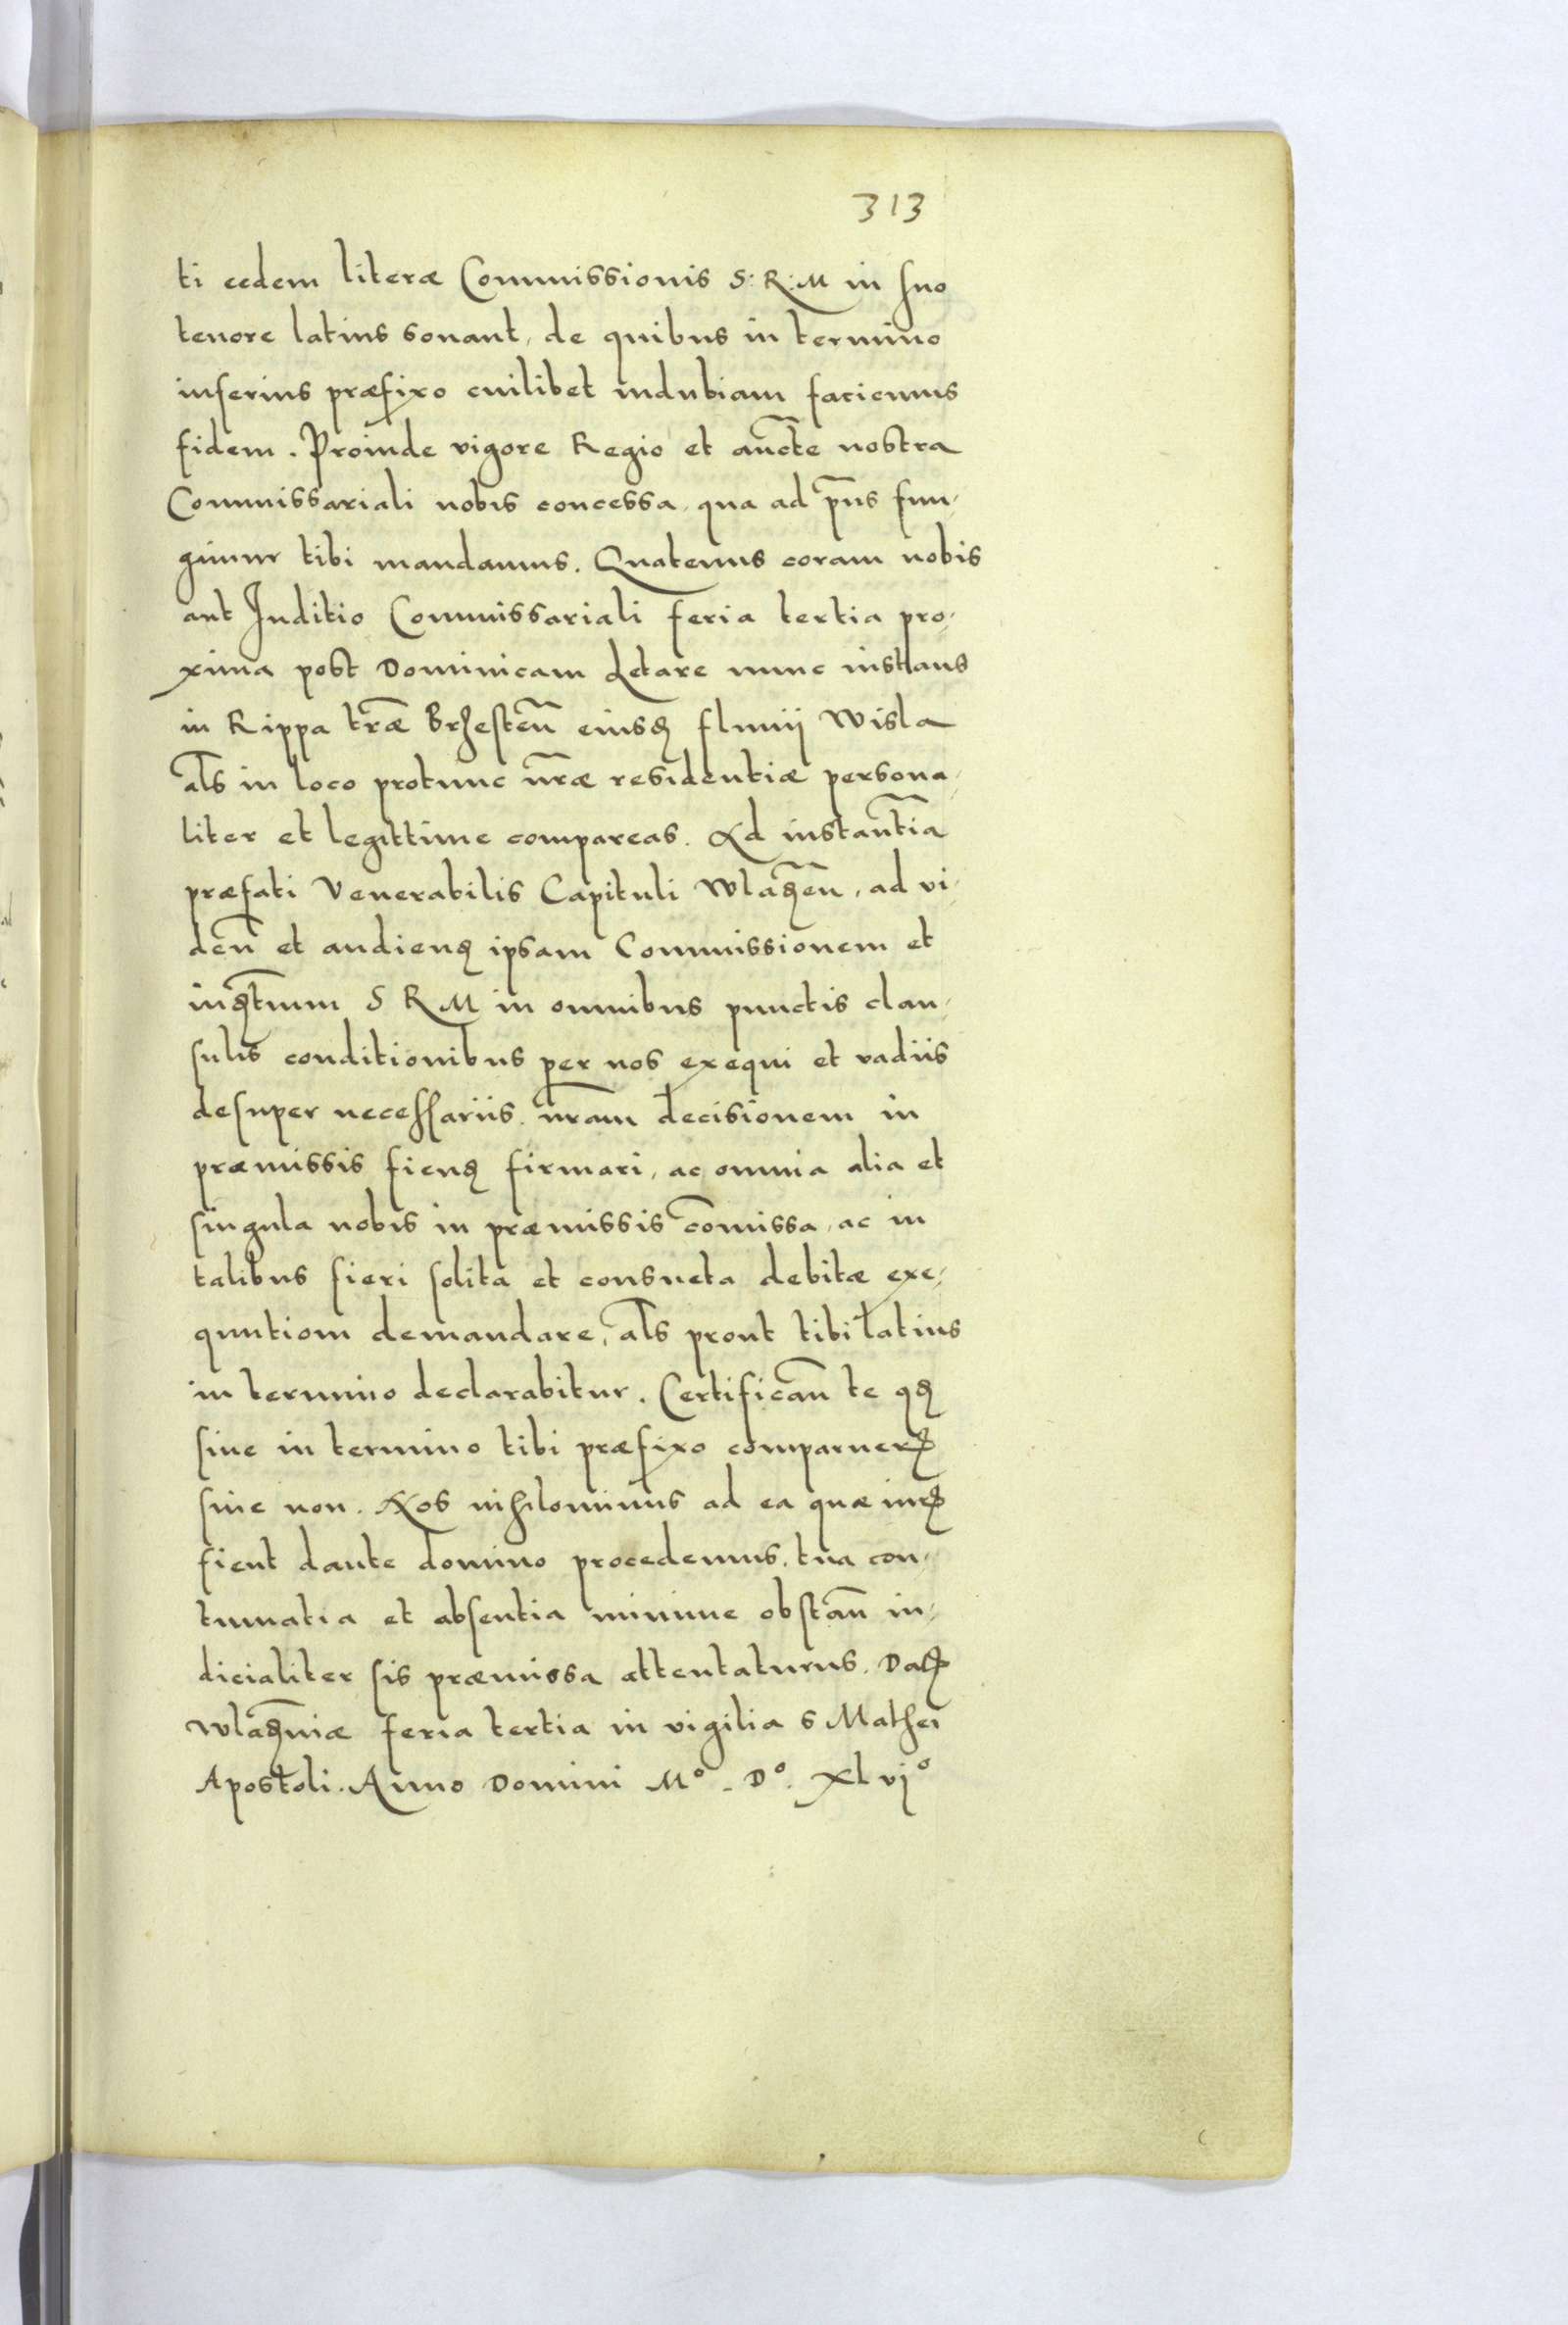 313
ti eedem literæ Commissionis S: R: M in suo
tenore latius sonant, de quibus in termino
inferius præfixo cuilibet indubiam faciemus
fidem. Proinde vigore Regio et auc̃te nostra
Commissariali nobis concessa, qua ad p̃ns fun-
gimur tibi mandamus. Quatenus coram nobis
aut Juditio Commissariali feria tertia pro-
xima post Dominicam Letare nunc instans
in Rippa tr̃æ Brzesteñ eiusꝗ fluuij Wisla
al̃s in loco protunc nr̃æ residentiæ persona-
liter et legittime compareas. Ad instant̃ia
præfati Venerabilis Capituli Wlaꝗẽn, ad vi-
deñ et audienꝗ ipsam Commissionem et
inꝗt̃uum S R M in omnibus punctis clau-
sulis conditionibus per nos exequi et vadiis
desuper necessariis. nr̃am decisionem in
præmissis fienꝗ firmari, ac omnia alia et
singula nobis in præmissis com̃issa, ac in
talibus fieri solita et consueta debitæ exe-
quutiom demandare, al̃s prout tibi latius
in termino declarabitur. Certificañ te qꝗ
siue in termino tibi præfixo comparuerꝭ
siue non. Nos nihilominus ad ea quæ iurꝭ
fient dante domino procedemus, tua con-
tumatia et absentia minime obstañ iu-
dicialiter sis præmissa attentaturus. Datꝭ
Wlaꝗ̃niæ feria tertia in vigilia S Mathei
Apostoli. Anno Domini Mº. Dº. Xlvjº